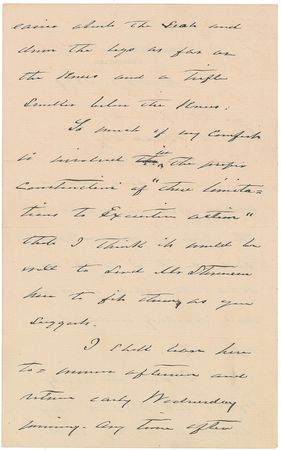 easier about the Seat and
down the legs as far as
the Knees and a trifle
Smaller below the Knees.
So much of my comfort
is involved in the proper
construction of "these limita=
tions to Executive action"
that I think it would be
well to send Mr.
here to fit them, as you
suggest.
I shall leave here
to=morrow afternoon and
return early Wednesday
morning. Any time after